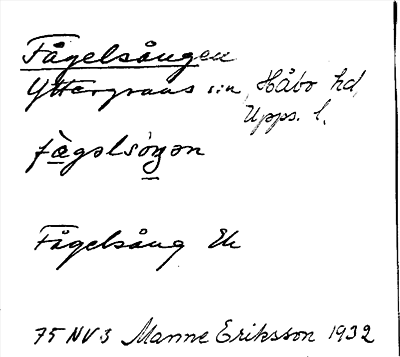 Fågelsången
Yttergrans s:n, Håbo hd,
Upps. l.
fǡgəlsóŋən
Fågelsång Ek
75 NV 3 Manne Eriksson 1932